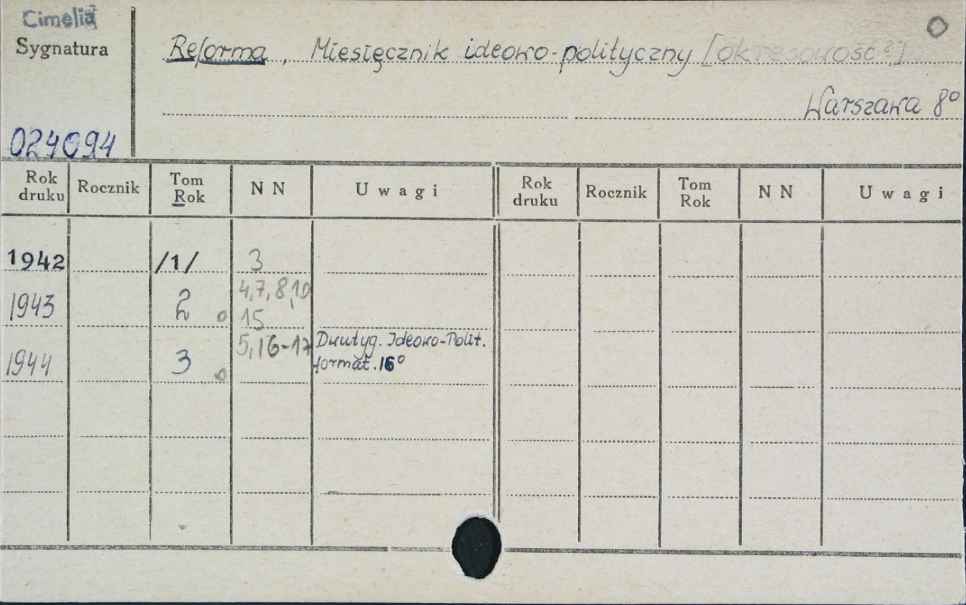 Cimelia
Sygnatura
024094
Reforma, Miesięcznik ideowo-polityczny [okresowość?]
Warszawa 8°
Rok druku Rocznik Tom Rok NN Uwagi Rok druku Rocznik Tom Rok NN Uwagi
1942 /1/ 3
1943 2 4,7,8,10
15
1944 3 5,16-17 Dwutyg. Ideowo-Polit.
format. 16°